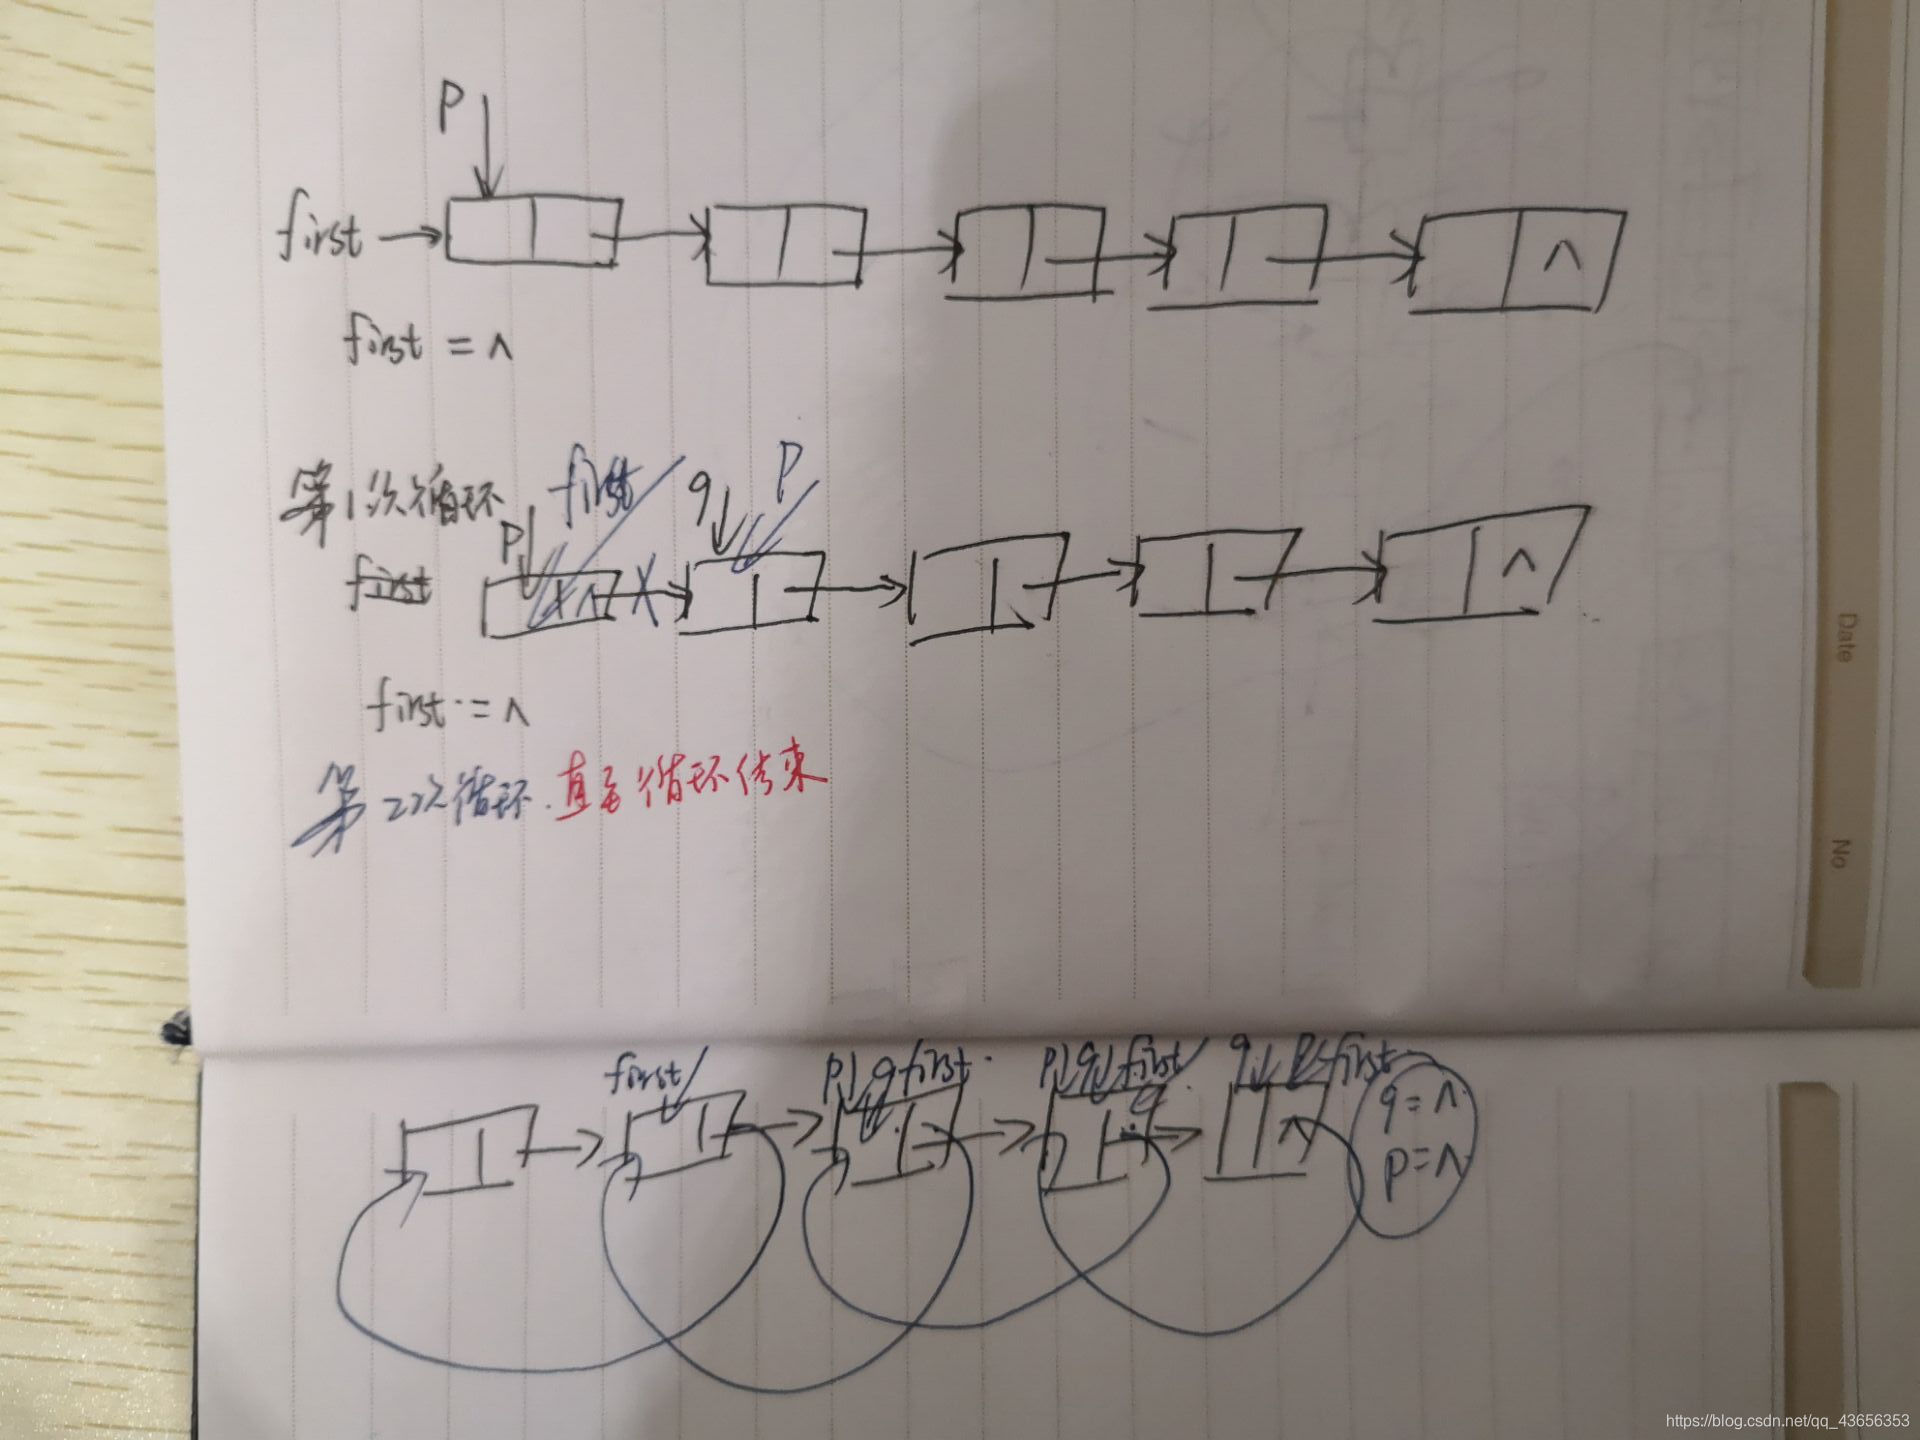 P
first
∧
first = ∧
第1次循环
P
first
q
P
first
∧
∧
first = ∧
第2次循环.直至循环结束
first
P q first
P q first
q
q P first
∧
q = ∧
P = ∧
Date
No
https://blog.csdn.net/qq_43656353